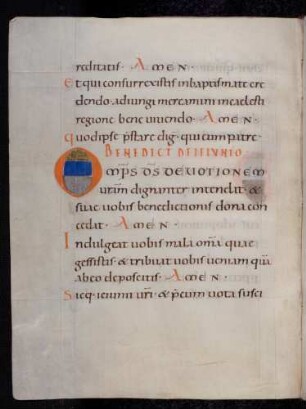 reditatis · AMEN ·
Et qui consurrexistis in baptismate cre
dendo · adiungi mereamini in caelesti
regione bene uiuendo · AMEN ·
quod ipse p̄stare dig · qui cum patre
BENEDICT DE IEIVNIO
OMPS DS DEUOTIONEM
ur̄am dignanter intendat · &
suae uobis benedictionis dona con
cedat · AMEN ·
Indulgeat uobis mala om̄a quae
gessistis · & tribuat uobis ueniam quā
ab eo deposcitis · AMEN ·
Sicq · ieiunii ur̄i · & p̄cum uota susci